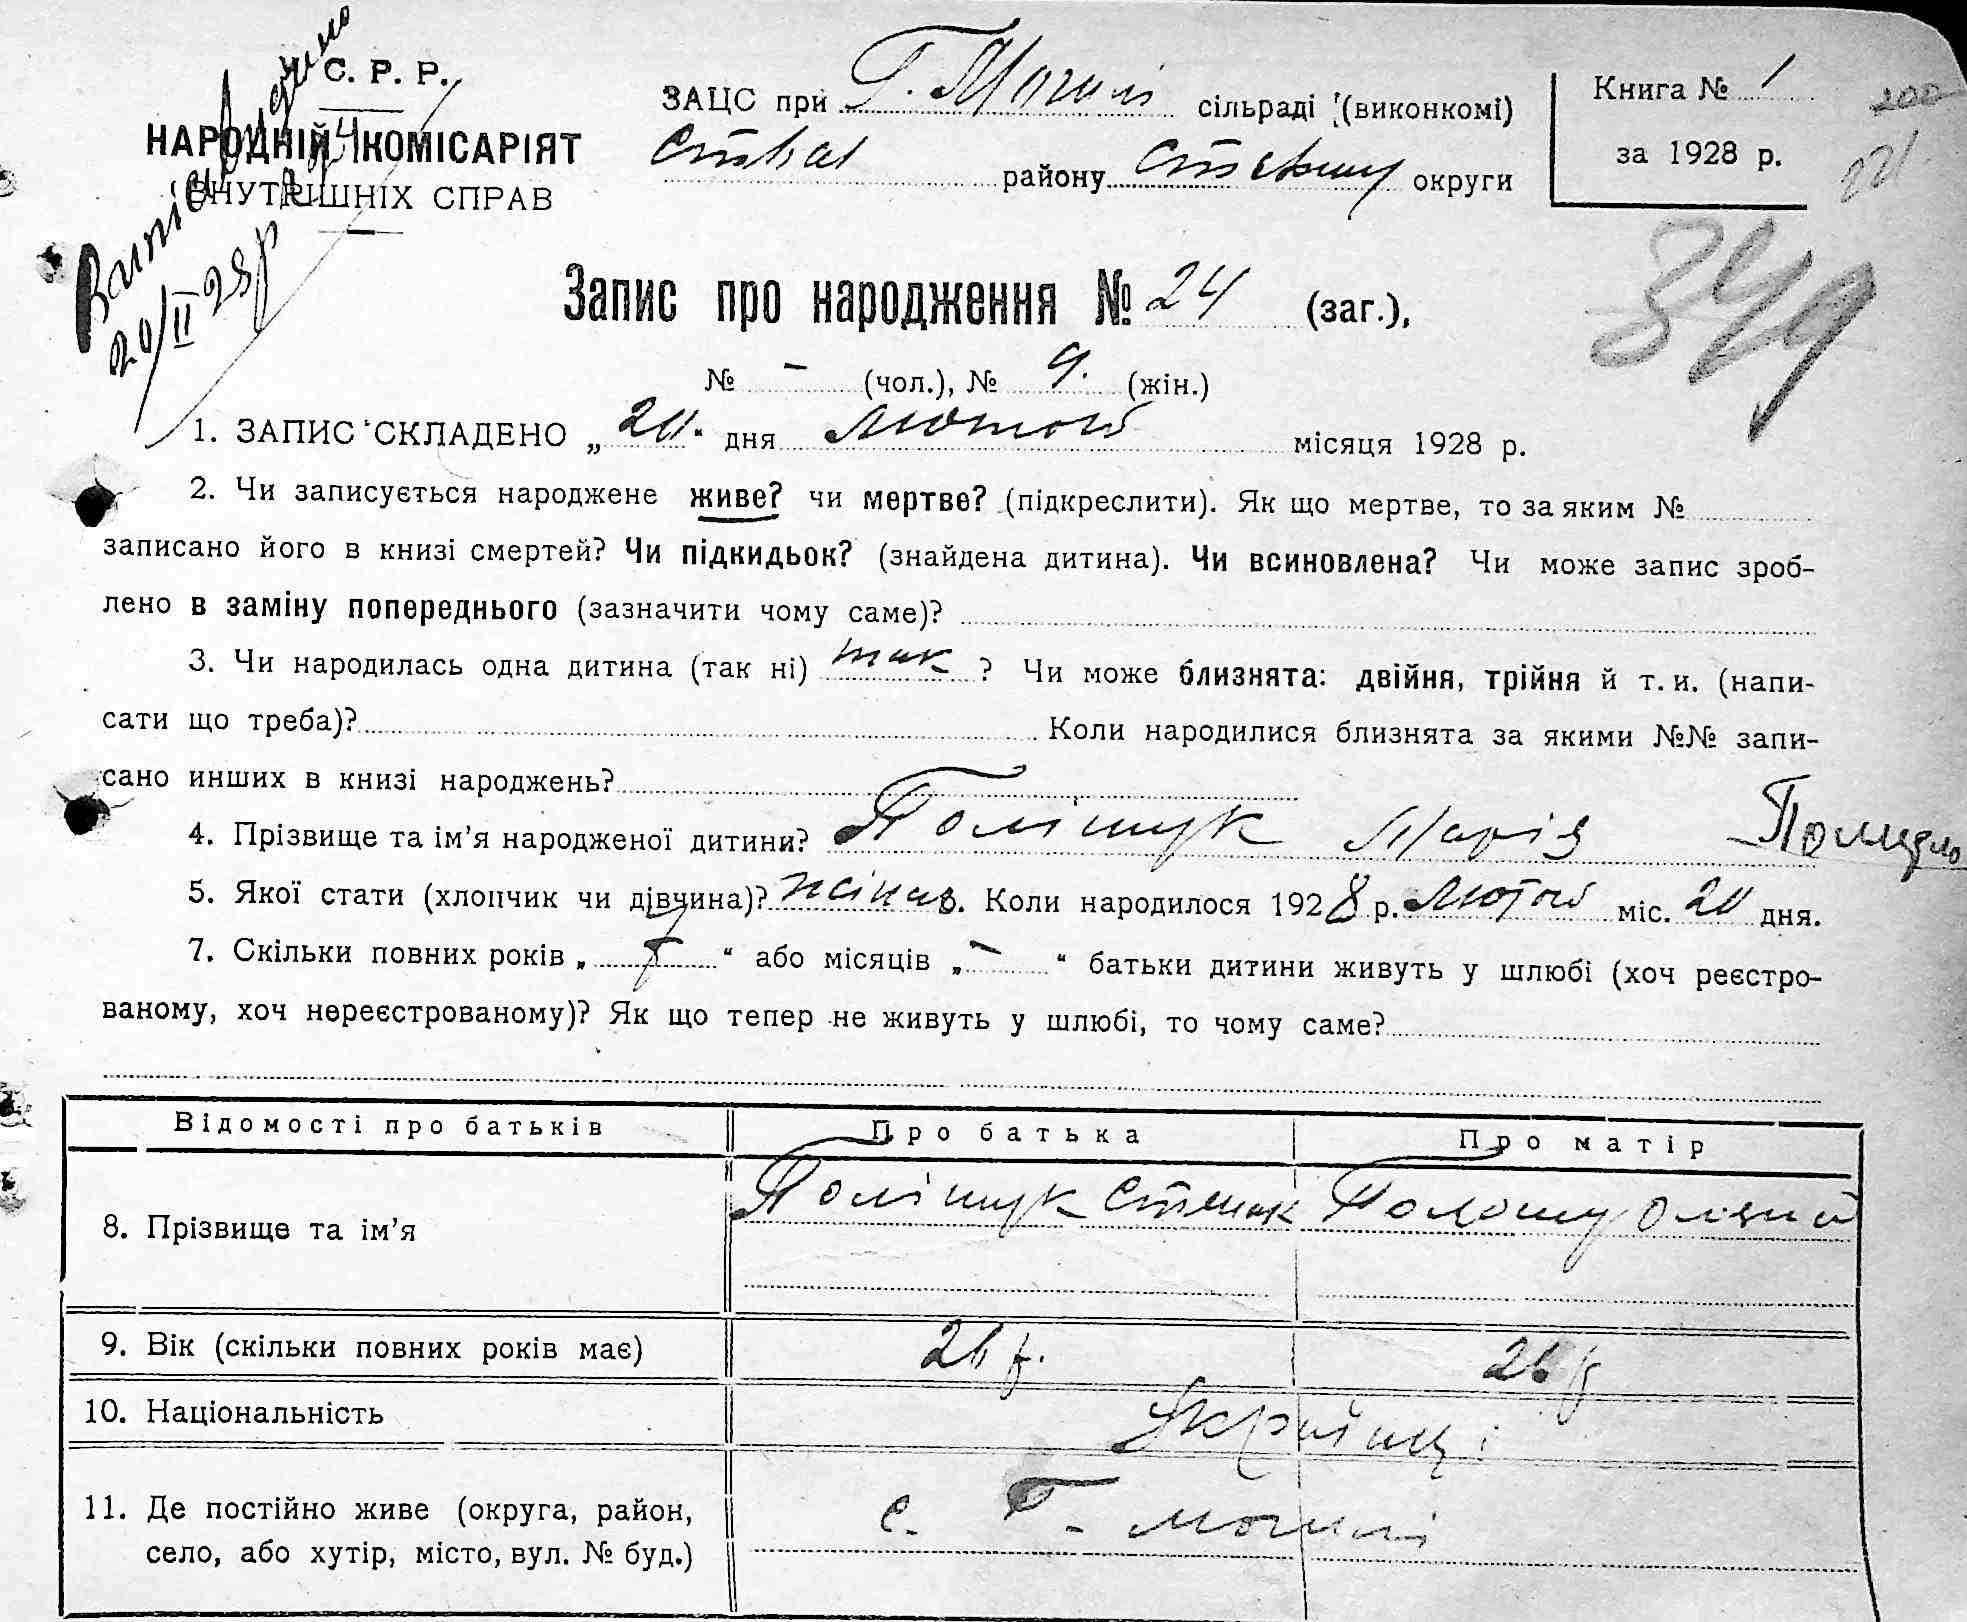 У. С. Р. Р.
НАРОДНІЙ КОМІСАРІЯТ
ВНУТРІШНІХ СПРАВ
ЗАЦС при Г. Могилі сільраді (виконкомі)
району округи
Книга № 1
за 1928 р.
200
221
349
20/II 28р
Запис про народження № 24 (заг.),
№ – (чол.), № 9. (жін.)
1. ЗАПИС СКЛАДЕНО „20" дня лютого місяця 1928 р.
2. Чи записується народжене живе? чи мертве? (підкреслити). Як що мертве, то за яким №
записано його в книзі смертей? Чи підкидьок? (знайдена дитина). Чи всиновлена? Чи може запис зроб-
лено в заміну попереднього (зазначити чому саме)?
3. Чи народилась одна дитина (так ні) так ? Чи може близнята: двійня, трійня й т. и. (напи-
сати що треба)? Коли народилися близнята за якими №№ запи-
сано инших в книзі народжень?
4. Прізвище та ім'я народженої дитини? Поліщук Марія
5. Якої стати (хлопчик чи дівчина)? 6. Коли народилося 1928 р. лютого міс. 20 дня.
7. Скільки повних років „ " або місяців „–" батьки дитини живуть у шлюбі (хоч реєстро-
ваному, хоч нереєстрованому)? Як що тепер не живуть у шлюбі, то чому саме?
Відомості про батьків Про батька Про матір
8. Прізвище та ім'я Поліщук
9. Вік (скільки повних років має) 26 р. 26 р
10. Національність Українці
11. Де постійно живе (округа, район,
село, або хутір, місто, вул. № буд.) с. Г. Могилі